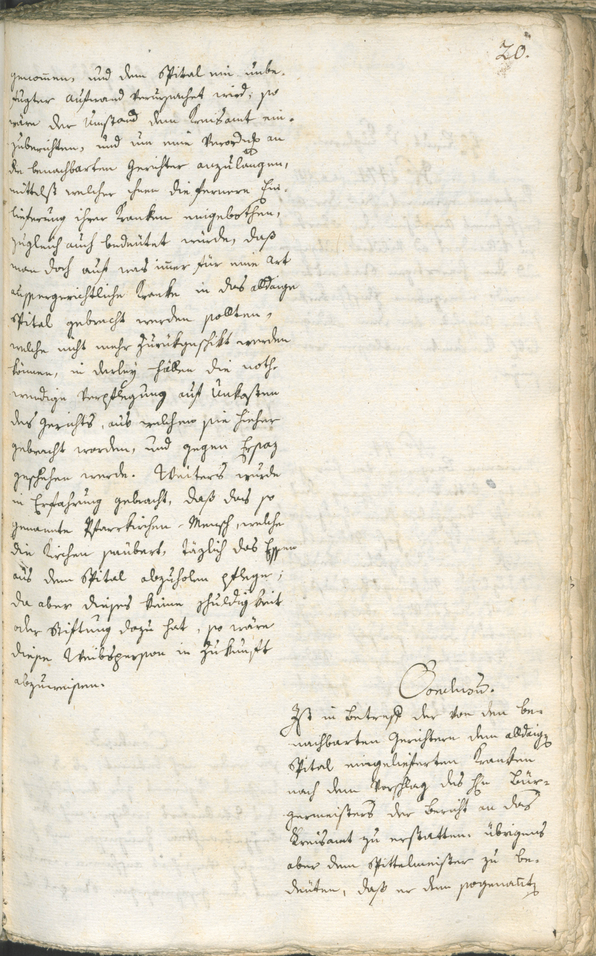 20.
genommen, und dem Spital ein unbe-
fugter Aufwand verursachet wird, so
wäre der Umstand dem Kreisamt ein-
zuberichten, und um eine Verordng an
die benachbarten Gerichter anzulangen,
mittelst welcher ihnen die fernere Ein-
lieferung ihrer Kranken eingebothen,
zugleich auch bedeutet werde, daß
wan doch auf was imer für eine Art
aussergerichtliche Kranke in das alldasige
Spital gebracht werden sollten,
welche nicht mehr zurükgeschikt werden
können, in derley Fällen die noth-
wendige Verpflegung auf Unkosten
des Gerichts, aus welchem sie hieher
gebracht worden, und gegen Ersaz
geschehen werde. Weiters wurde
in Erfahrung gebracht, daß das so
genannte Pfarrkirchen-Mensch, welche
die Kirchen saubert, täglich das Essen
aus dem Spital abzuholen pflege,
da aber dieses keine Schuldigkeit
oder Stiftung dazu hat, so wäre
diese Weibsperson in Zukunft
abzuweisen.
Conclusum.
Ist in Betreff der von den be-
nachbarten Gerichtern dem alldasig
Spital eingelieferten Kranken
nach dem Vorschlag des Hn Bür-
germeisters der Bericht an das
Kreisamt zu erstatten. übrigens
aber dem Spittelmeister zu be-
deuten, daß er dem sogenant